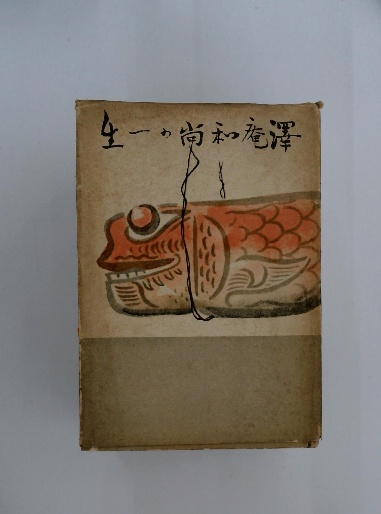 澤庵和尚の一生